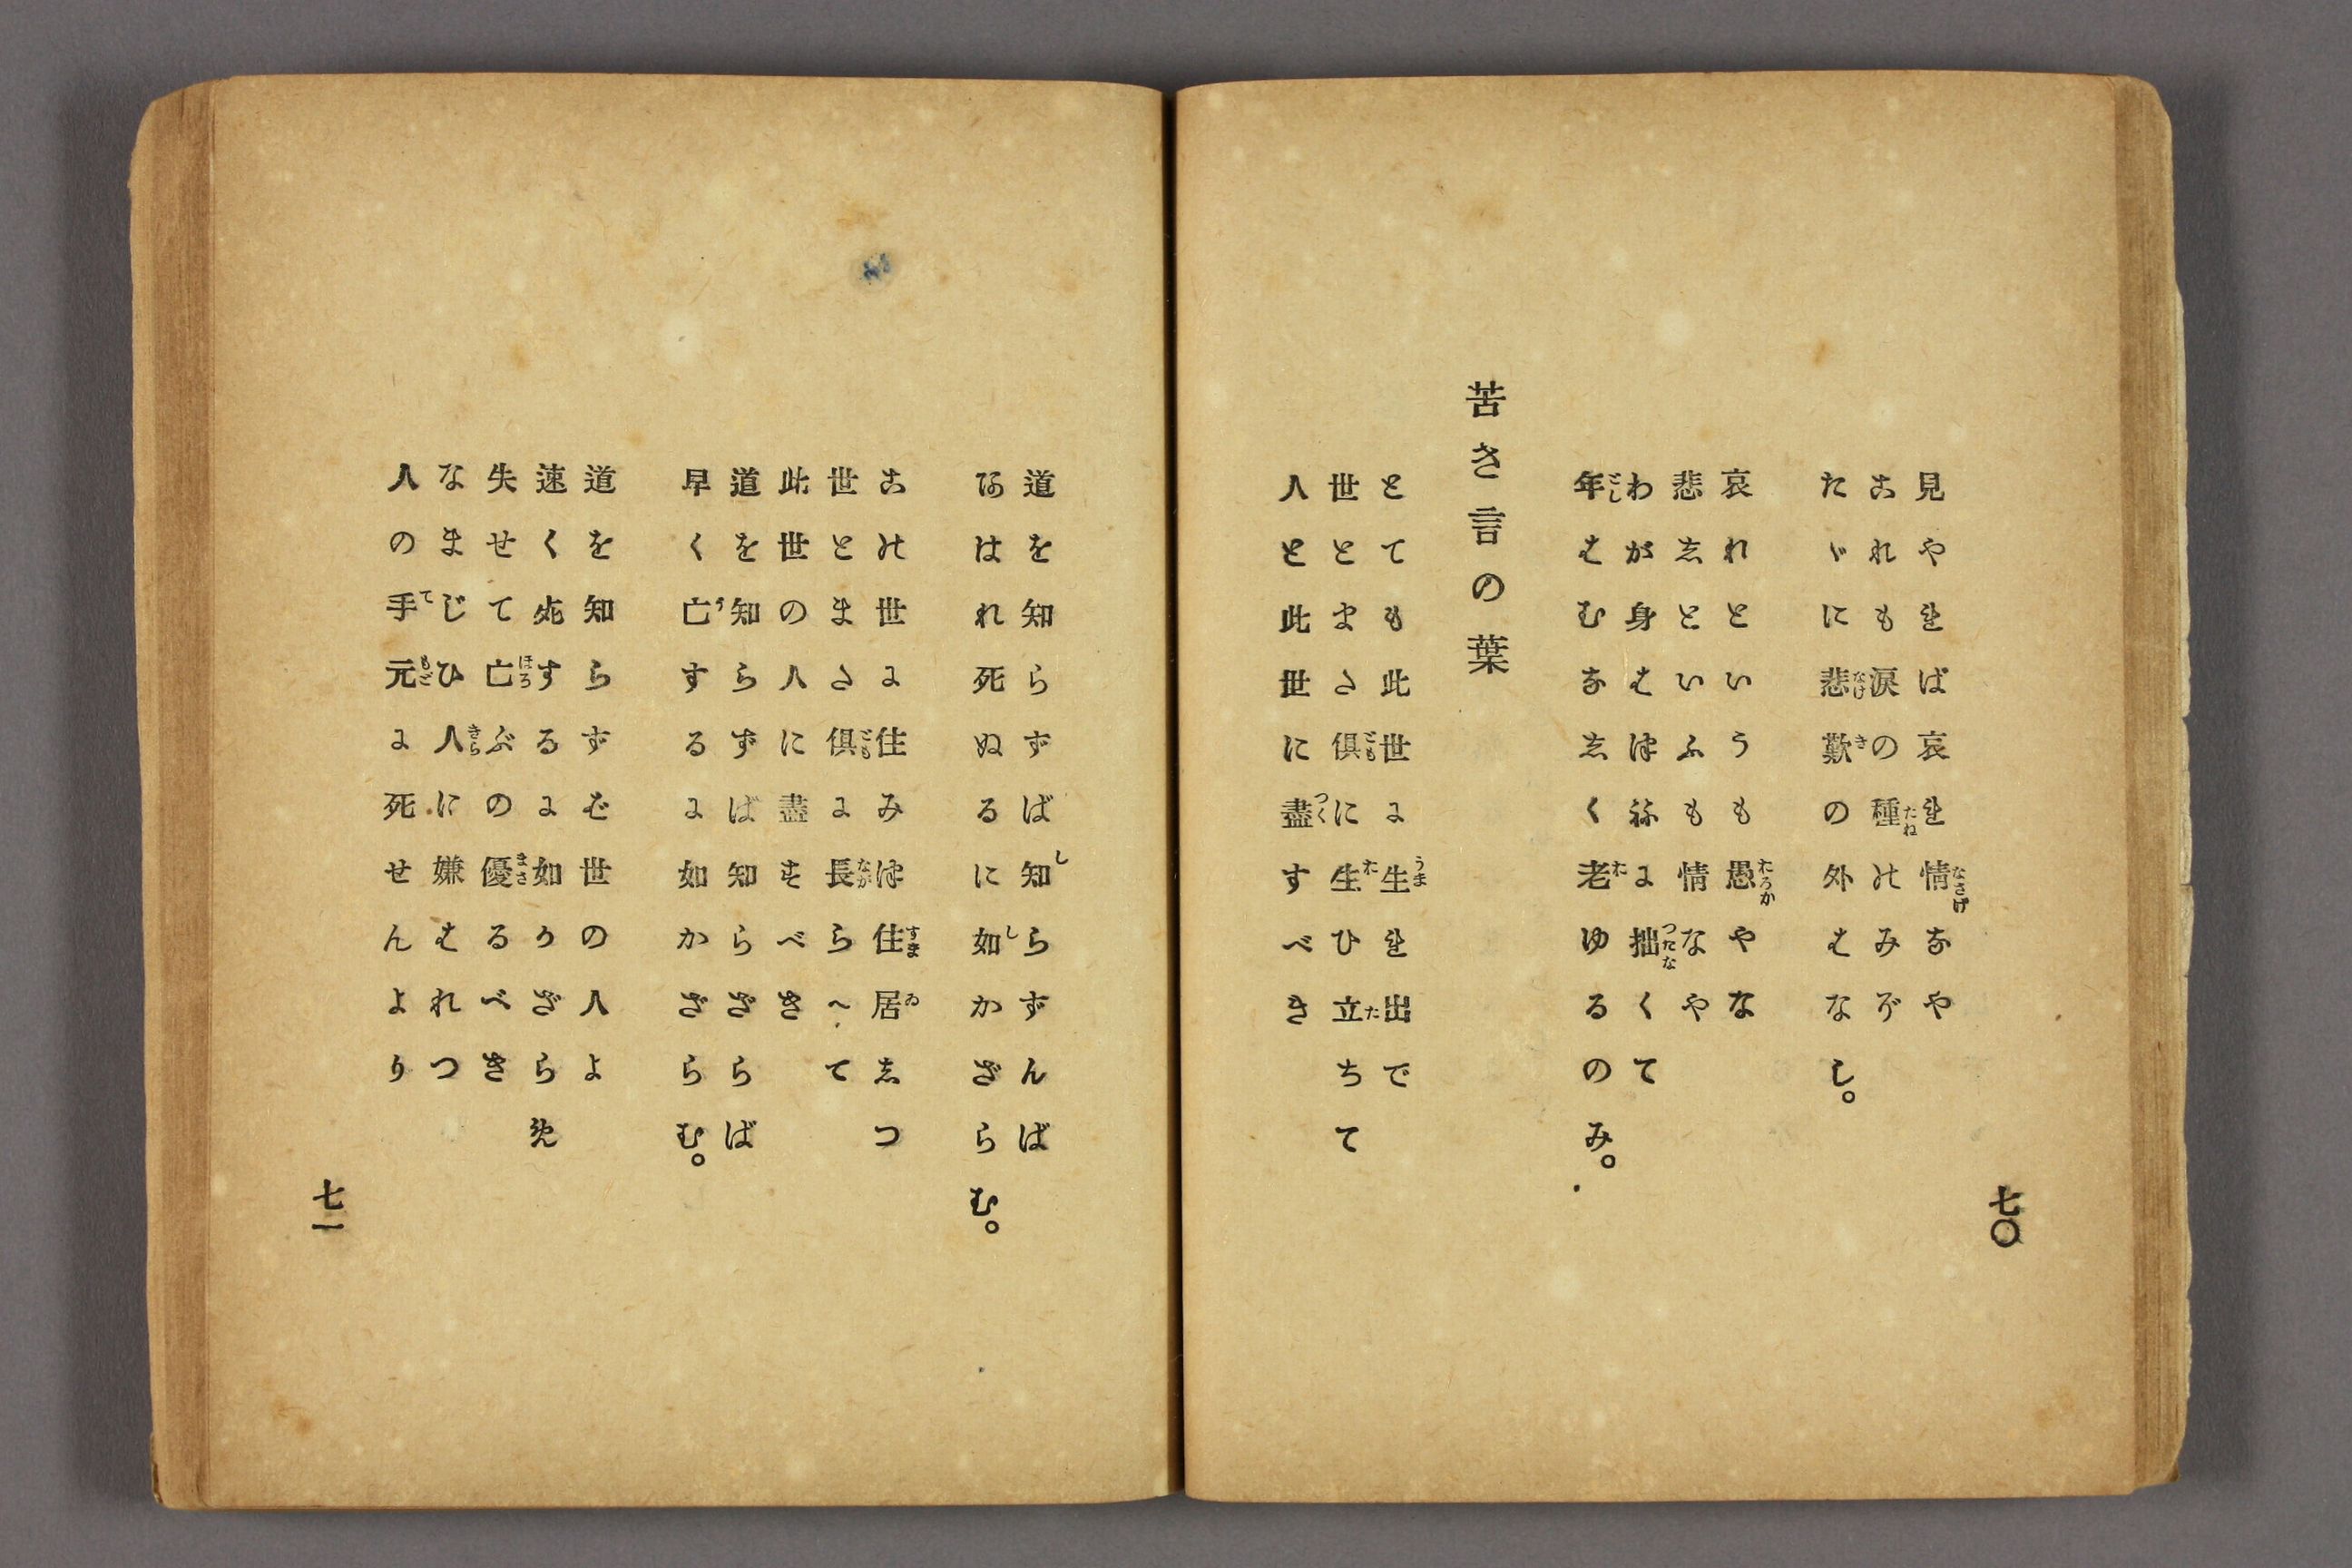 七〇
見やれば哀れ情なや
これも涙の種のみぞ
たゞに悲歎の外はなし。
哀れというも愚やな
悲しといふも情なや
わが身はつねに拙くて
年はむなしく老ゆるのみ。
苦き言の葉
とても此世に生れ出で
世とまさ俱に生ひ立ちて
人と此世に盡すべき
道を知らずば知らずんば
あはれ死ぬるに如かざらむ。
この世に住みつ住居しつ
世とまさ俱に長らへて
此世の人に盡すべき
道を知らずば知らざらば
早く亡するに如かざらむ。
道を知らずば世の人よ
速く死するに如かざらめ
失せて亡ぶの優るべき
なまじひ人に嫌はれつ
人の手元に死せんより
七一